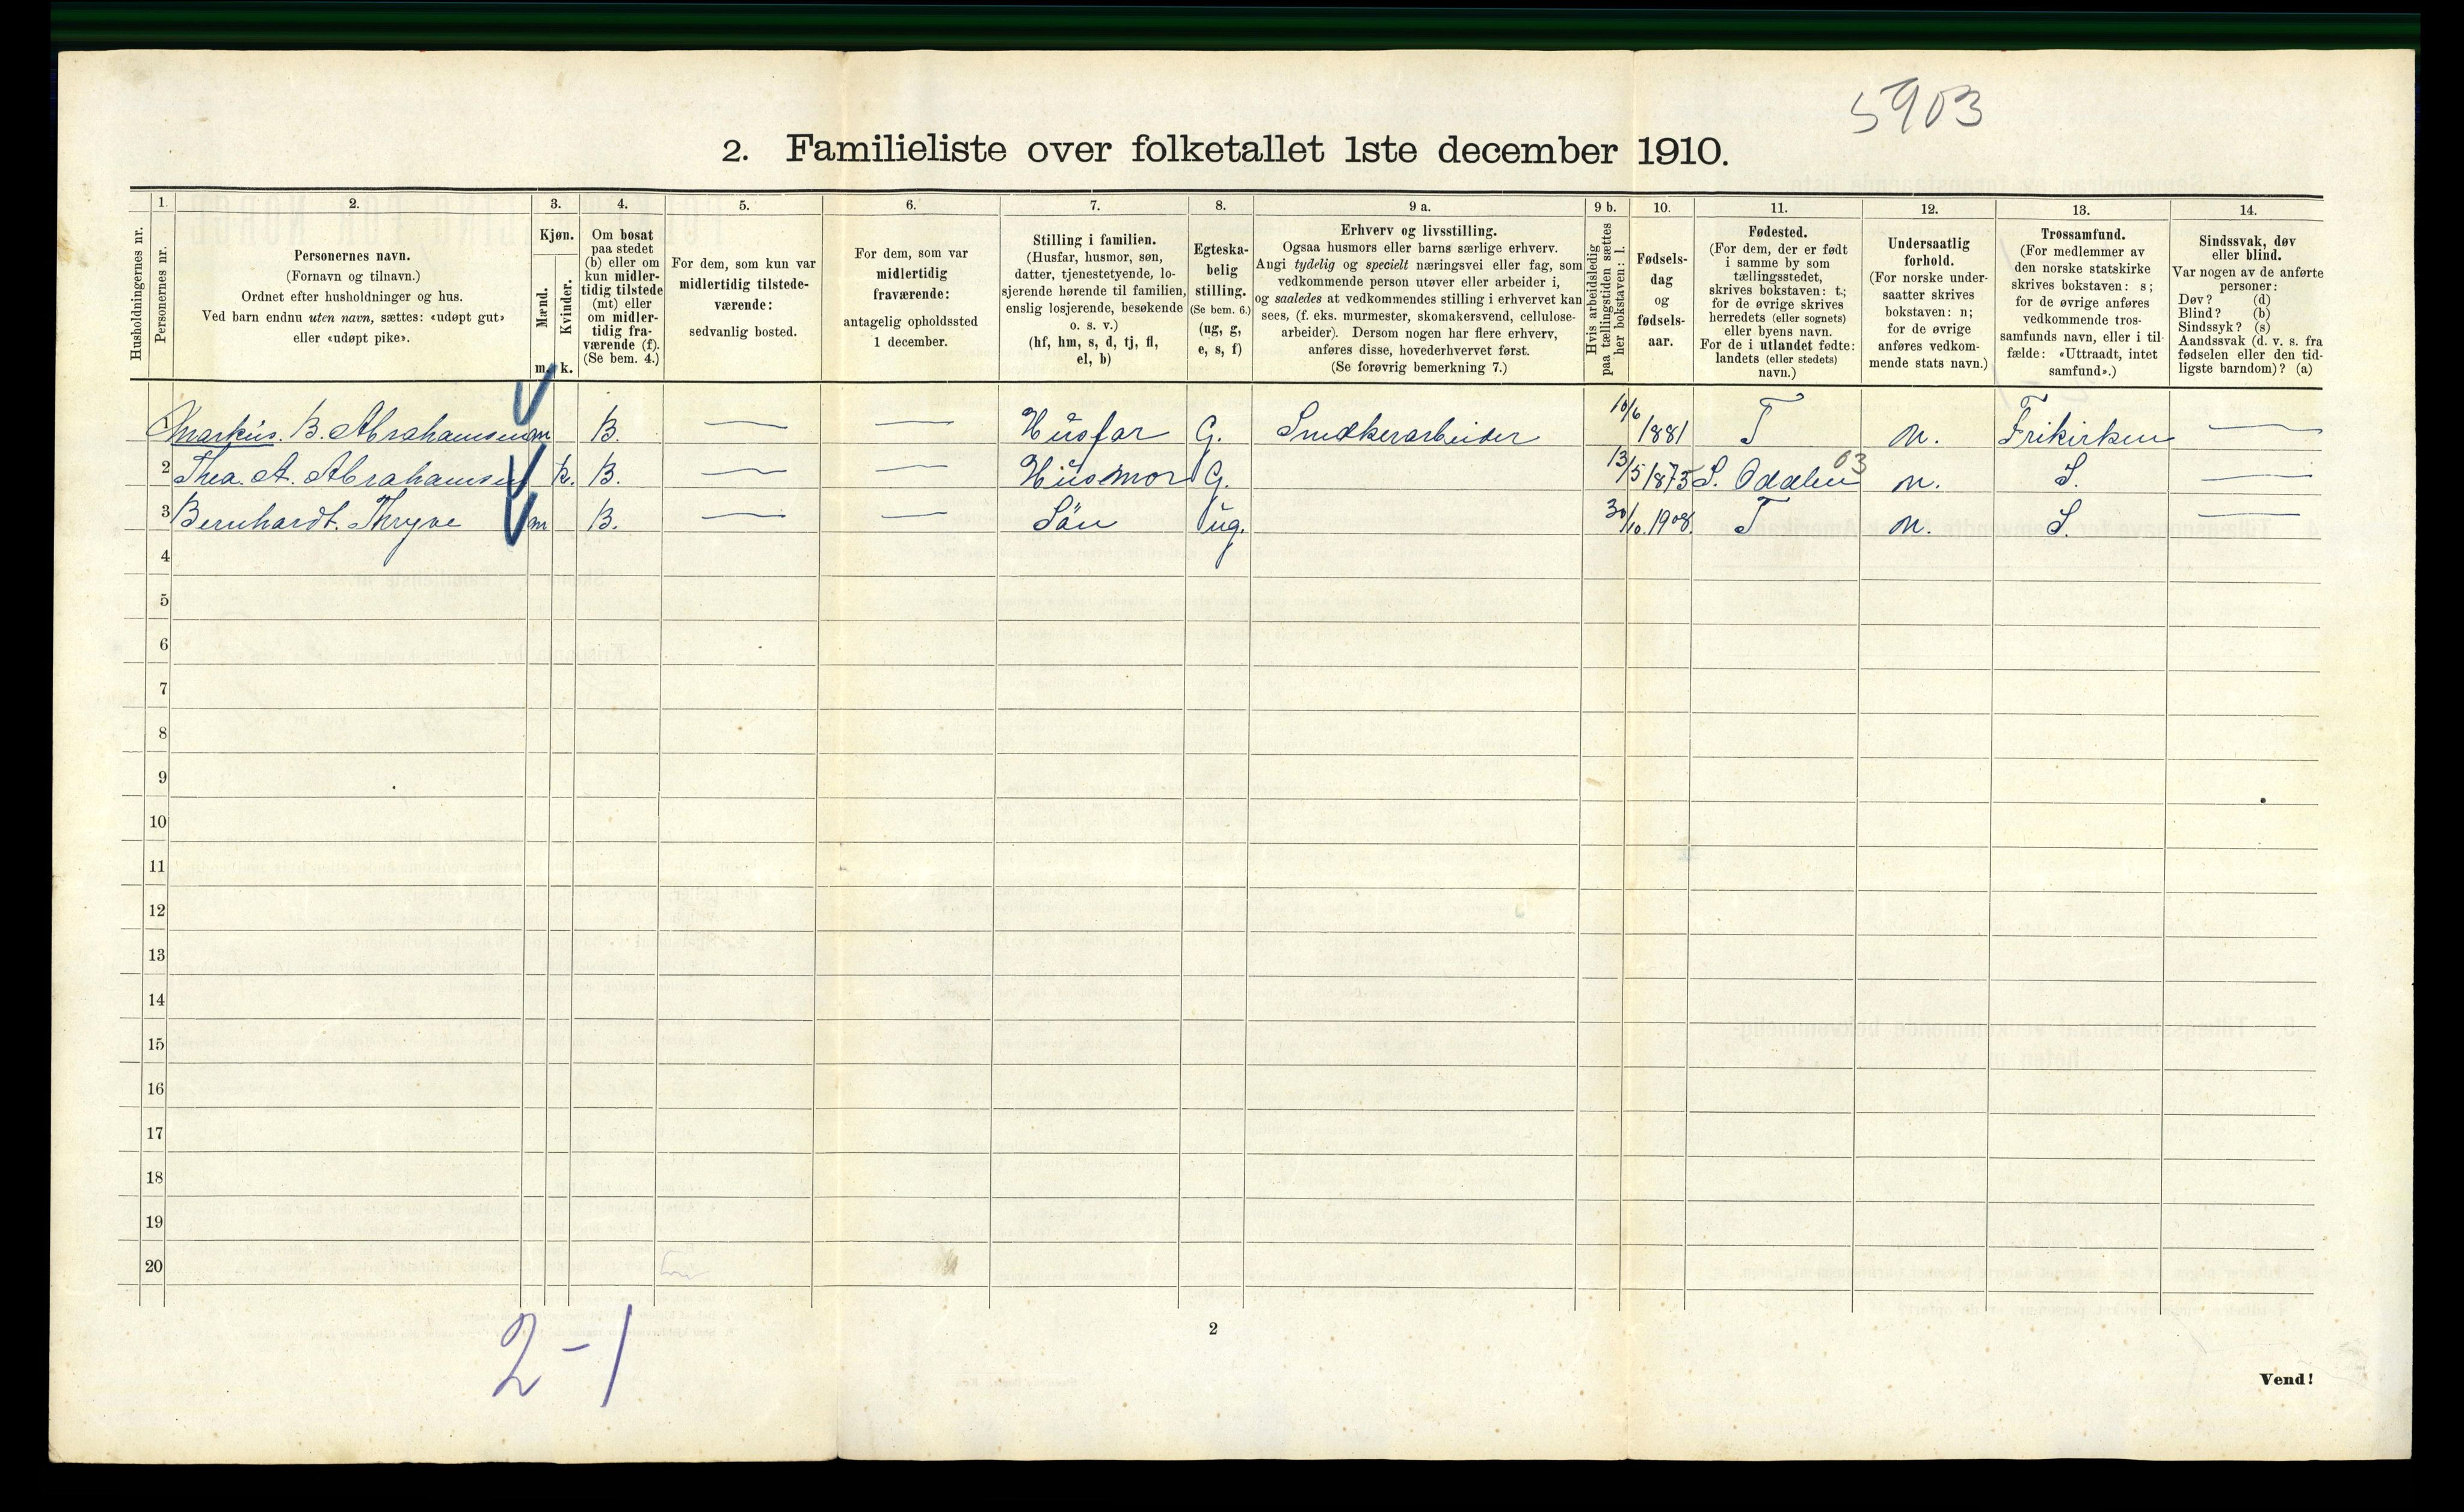 5903
2. Familieliste over folketallet 1ste december 1910.
1. 2. 3. 4. 5. 6. 7. 8. 9 a. 9 b. 10. 11. 12. 13. 14.
Husholdningernes nr.
Personernes nr.
Personernes navn.
(Fornavn og tilnavn.)
Ordnet efter husholdninger og hus.
Ved barn endnu uten navn, sættes: «udøpt gut»
eller «udøpt pike».
Kjøn.
Mænd.
Kvinder.
m. k.
Om bosat
paa stedet
(b) eller om
kun midler-
tidig tilstede
(mt) eller
om midler-
tidig fra-
værende (f).
(Se bem. 4.)
For dem, som kun var
midlertidig tilstede-
værende:
sedvanlig bosted.
For dem, som var
midlertidig
fraværende:
antagelig opholdssted
1 december.
Stilling i familien.
(Husfar, husmor, søn,
datter, tjenestetyende, lo-
sjerende hørende til familien,
enslig losjerende, besøkende
o. s. v.)
(hf, hm, s, d, tj, fl,
el, b)
Egteska-
belig
stilling.
(Se bem. 6.)
(ug, g,
e, s, f)
Erhverv og livsstilling.
Ogsaa husmors eller barns særlige erhverv.
Angi tydelig og specielt næringsvei eller fag, som
vedkommende person utøver eller arbeider i,
og saaledes at vedkommendes stilling i erhvervet kan
sees, (f. eks. murmester, skomakersvend, cellulose-
arbeider). Dersom nogen har flere erhverv,
anføres disse, hovederhvervet først.
(Se forøvrig bemerkning 7.)
Hvis arbeidsledig
paa tællingstiden sættes
her bokstaven: l.
Fødsels-
dag
og
fødsels-
aar.
Fødested.
(For dem, der er født
i samme by som
tællingsstedet,
skrives bokstaven: t;
for de øvrige skrives
herredets (eller sognets)
eller byens navn.
For de i utlandet fødte:
landets (eller stedets)
navn.)
Undersaatlig
forhold.
(For norske under-
saatter skrives
bokstaven: n;
for de øvrige
anføres vedkom-
mende stats navn.)
Trossamfund.
(For medlemmer av
den norske statskirke
skrives bokstaven: s;
for de øvrige anføres
vedkommende tros-
samfunds navn, eller i til-
fælde: «Uttraadt, intet
samfund».)
Sindssvak, døv
eller blind.
Var nogen av de anførte
personer:
Døv? (d)
Blind? (b)
Sindssyk? (s)
Aandssvak (d. v. s. fra
fødselen eller den tid-
ligste barndom)? (a)
1 Markus. B. Abrahamsen m B. — — Husfar G. Snedkerarbeider 10/6 1881 T n. Frikirken —
2 Thea. A. Abrahamsen k. B. — — Husmor G. 13/5 1875 S. Oddalen 03 n. S. —
3 Bernhardt. Thryve m B. — — Sön ug. 30/10. 1908. T n. S. —
4
5
6
7
8
9
10
11
12
13
14
15
16
17
18
19
20
2-1
2
Vend!